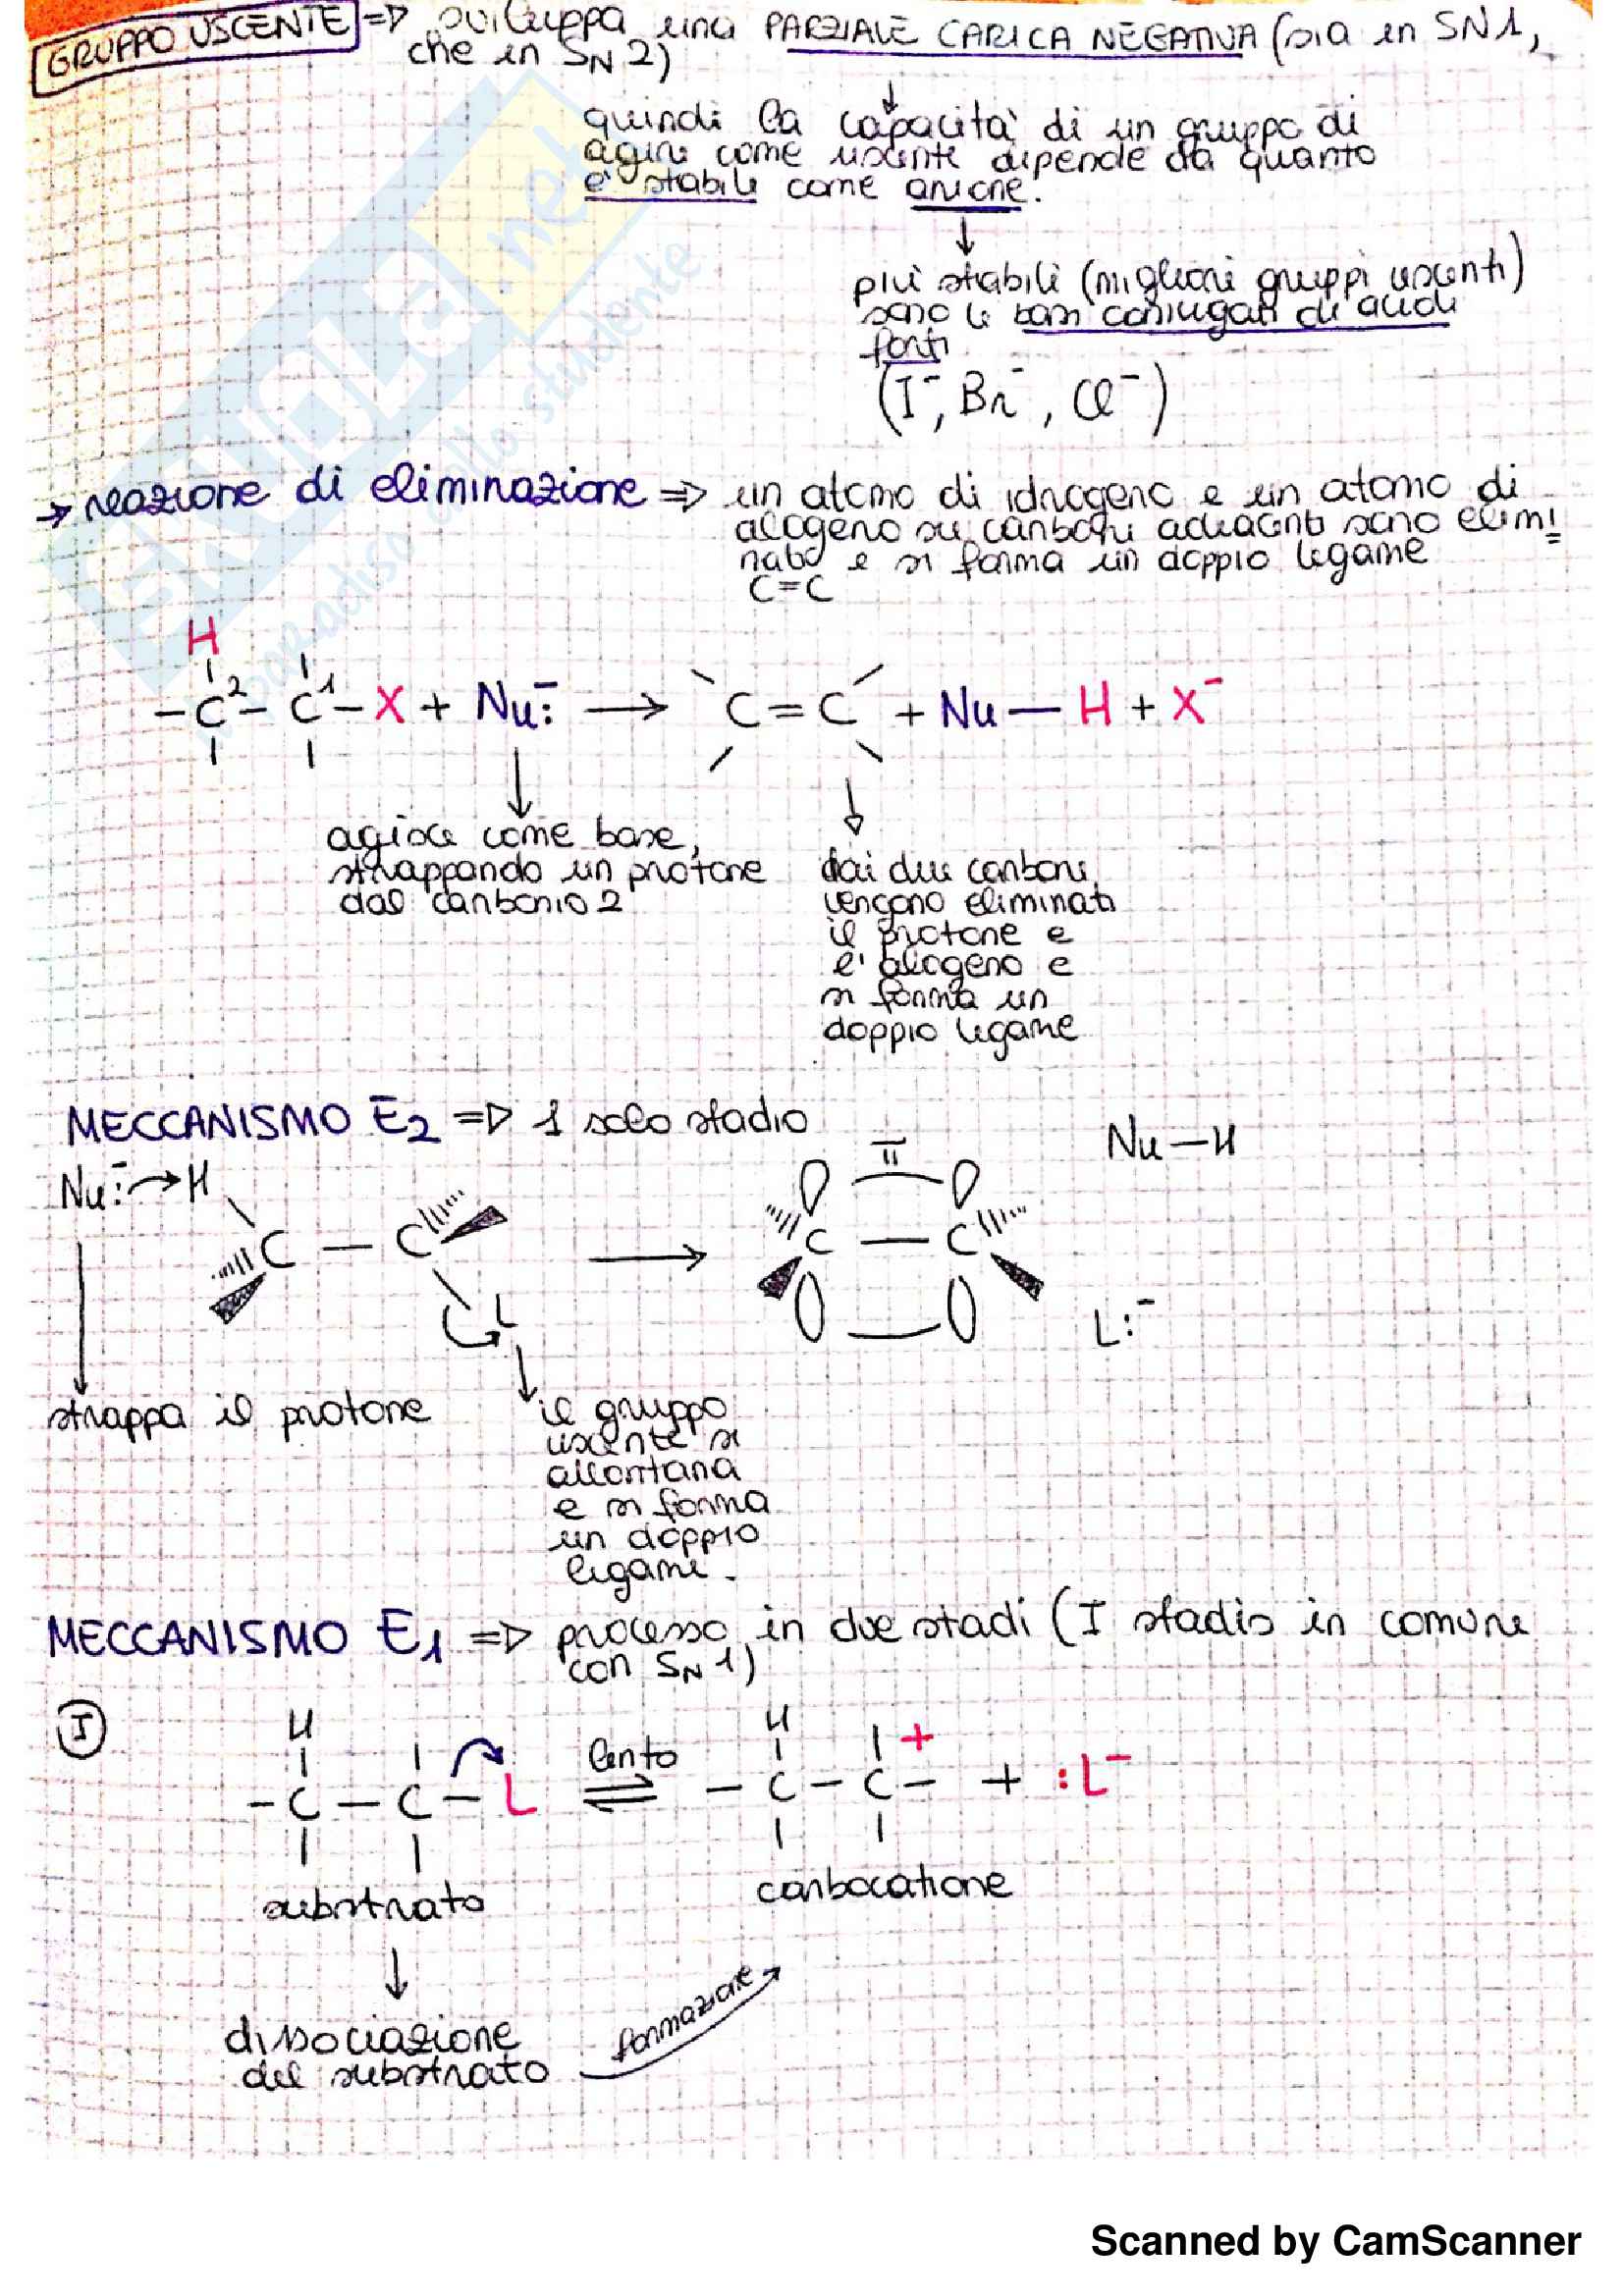 GRUPPO USCENTE => sviluppa una PARZIALE CARICA NEGATIVA (sia in SN1,
che in SN2)
quindi la capacità di un gruppo di
agire come uscente dipende da quanto
è stabile come anione.
più stabili (migliori gruppi uscenti)
sono le basi coniugati di acidi
forti
(I⁻, Br⁻, Cl⁻)
→ reazione di eliminazione => un atomo di idrogeno e un atomo di
alogeno su carboni adiacenti sono elimi
nato e si forma un doppio legame
C=C
H
-C²-C¹-X + Nu:⁻ → C=C + Nu-H + X⁻
agisce come base,
strappando un protone
dal carbonio 2
dai due carboni
vengono eliminati
il protone e
l'alogeno e
si forma un
doppio legame
MECCANISMO E2 => 1 solo stadio
Nu:⁻ → H
C - C
L
→
π
C - C
Nu-H
L:⁻
strappa il protone
il gruppo
uscente si
allontana
e si forma
un doppio
legame.
MECCANISMO E1 => processo in due stadi (I stadio in comune
con SN1)
I
H
-C-C-L
lento
⇌
H
-C-C⁺- + :L⁻
substrato
carbocatione
dissociazione
del substrato
formazione
Scanned by CamScanner